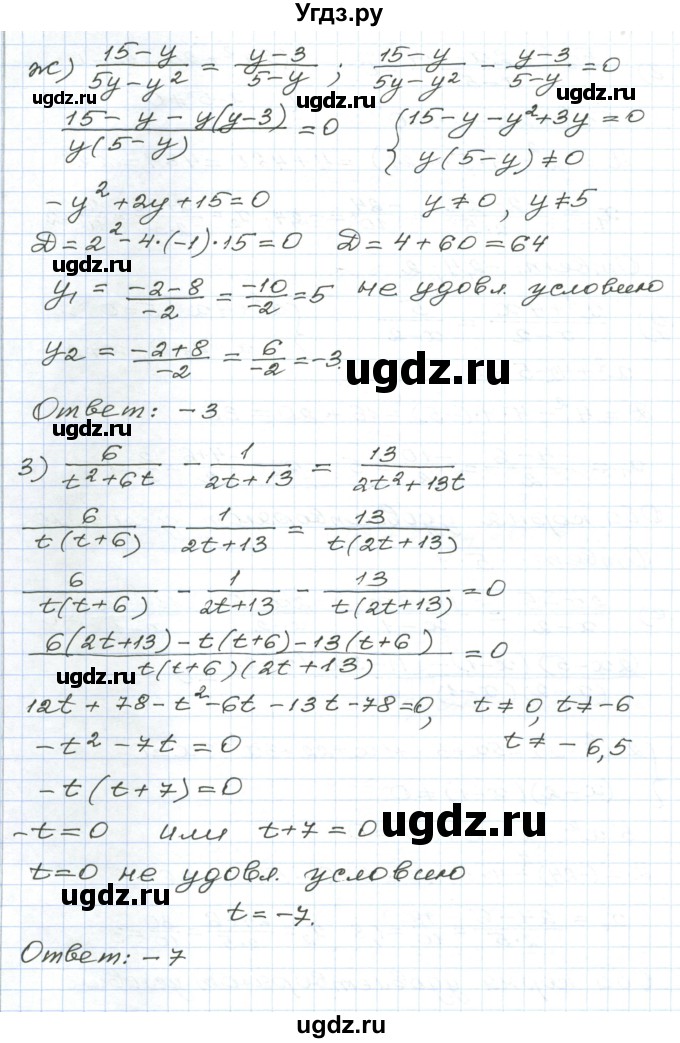 Угдз.ру
ж) (15-y)/(5y-y²) = (y-3)/(5-y); (15-y)/(5y-y²) - (y-3)/(5-y) = 0
ugdz.ru ugdz.ru ugdz.ru
(15-y-y(y-3))/(y(5-y)) = 0 {15-y-y²+3y=0
y(5-y)≠0
-y²+2y+15=0 y≠0, y≠5
D=2²-4·(-1)·15=0 D=4+60=64
ugdz.ru
y₁ = (-2-8)/(-2) = (-10)/(-2) = 5 не удовл. условию
y₂ = (-2+8)/(-2) = 6/(-2) = -3.
ugdz.ru
Ответ: -3
ugdz.ru
з) 6/(t²+6t) - 1/(2t+13) = 13/(2t²+13t)
6/(t(t+6)) - 1/(2t+13) = 13/(t(2t+13))
6/(t(t+6)) - 1/(2t+13) - 13/(t(2t+13)) = 0
(6(2t+13)-t(t+6)-13(t+6))/(t(t+6)(2t+13)) = 0
ugdz.ru
12t+78-t²-6t-13t-78=0, t≠0, t≠-6
-t²-7t=0 t≠-6,5
-t(t+7)=0
-t=0 или t+7=0
ugdz.ru
t=0 не удовл. условию
ugdz.ru
t=-7.
Ответ: -7
ugdz.ru